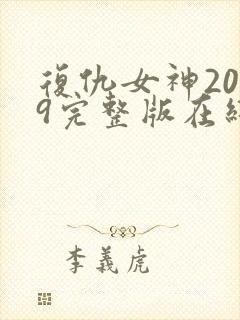 復仇女神20
9完整版在
李義虎